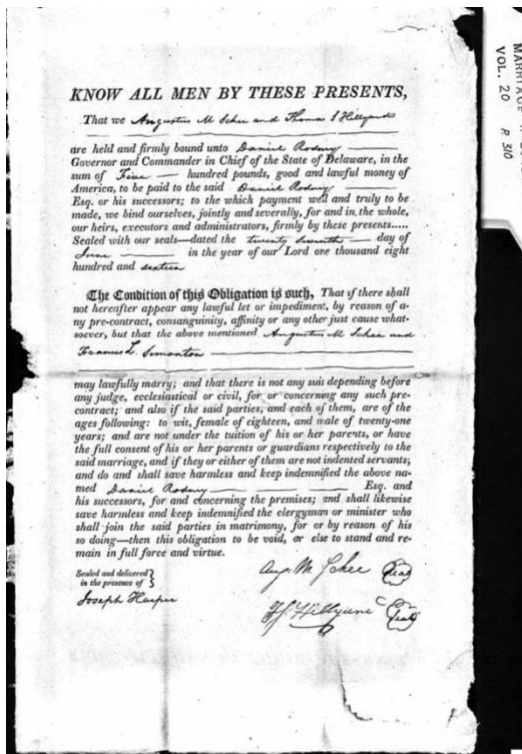 KNOW ALL MEN BY THESE PRESENTS,
That we Augustus M Schee and Thomas J Hillyard
are held and firmly bound unto Daniel Rodney
Governor and Commander in Chief of the State of Delaware, in the
sum of Five hundred pounds, good and lawful money of
America, to be paid to the said Daniel Rodney
Esq. or his successors; to the which payment well and truly to be
made, we bind ourselves, jointly and severally, for and in, the whole,
our heirs, executors and administrators, firmly by these presents.....
Sealed with our seals—dated the twenty seventh day of
June in the year of our Lord one thousand eight
hundred and sixteen
The Condition of this Obligation is such, That if there shall
not hereafter appear any lawful let or impediment, by reason of a-
ny pre-contract, consanguinity, affinity or any other just cause what-
soever, but that the above mentioned Augustus M Schee and
Frances L. Simonton
may lawfully marry; and that there is not any suit depending before
any judge, ecclesiastical or civil, for or concerning any such pre-
contract; and also if the said parties, and each of them, are of the
ages following: to wit, female of eighteen, and male of twenty-one
years; and are not under the tuition of his or her parents, or have
the full consent of his or her parents or guardians respectively to the
said marriage, and if they or either of them are not indented servants;
and do and shall save harmless and keep indemnified the above na-
med Daniel Rodney Esq. and
his successors, for and concerning the premises; and shall likewise
save harmless and keep indemnified the clergyman or minister who
shall join the said parties in matrimony, for or by reason of his
so doing—then this obligation to be void, or else to stand and re-
main in full force and virtue.
Sealed and delivered
in the presence of
Joseph Harper
Aug. M Schee Seal
Hillyard Seal
MARRIAGE
VOL. 20 P 310